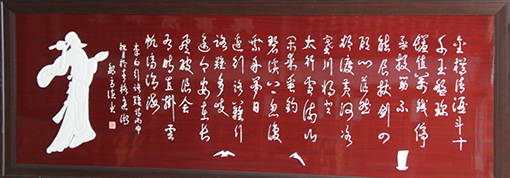 金樽清酒斗十
千玉盤珍
饈值萬錢停
杯投箸不
能食拔劍四
顧心茫然
欲渡黃河冰
塞川將登
太行雪滿山
閑來垂釣
碧溪上忽復
乘舟夢日
邊行路難行
路難多歧
路今安在長
風破浪會
有時直掛雲
帆濟滄海
李白行路難